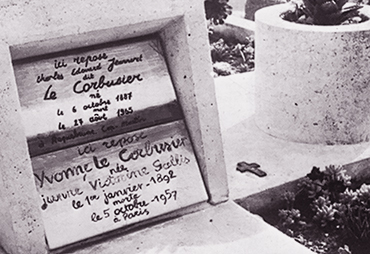 ici repose
charles Edouard Jeanneret
dit
Le Corbusier
né
le 6 octobre 1887
mort
le 27 août 1965
à Roquebrune Cap Martin
ici repose
Yvonne Le Corbusier
née
jeanne Victorine Gallis
le 1er janvier-1892
morte
le 5 octobre-1957
à Paris